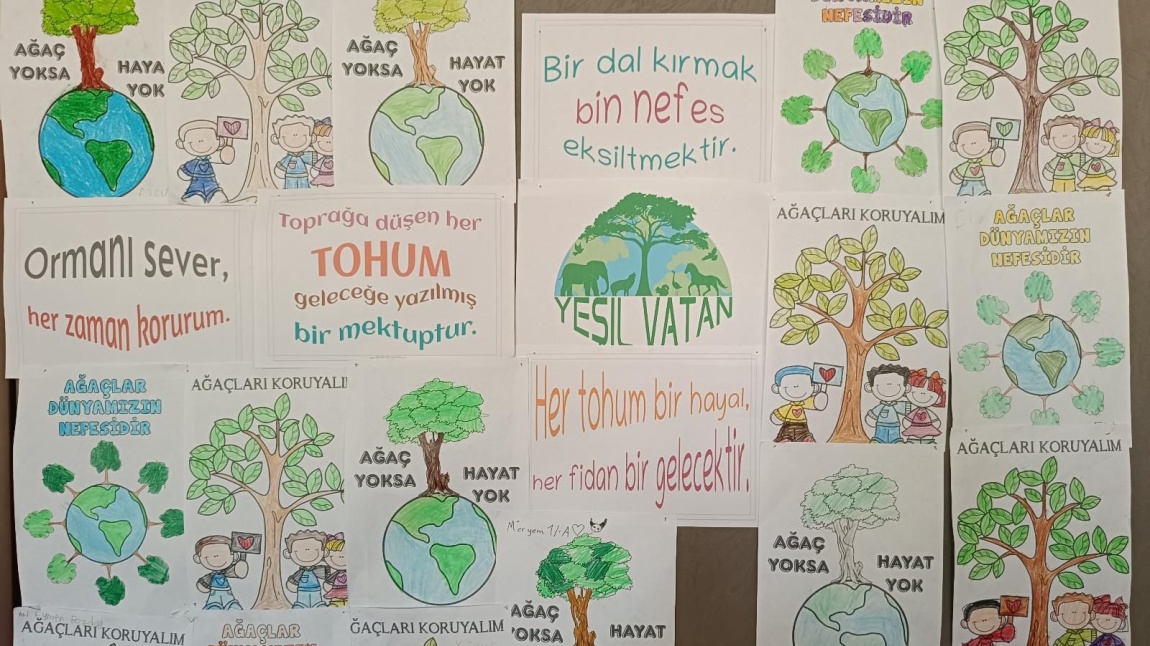 AĞAÇ
YOKSA
HAYA
YOK
AĞAÇ
YOKSA
HAYAT
YOK
Bir dal kırmak
bin nefes
eksiltmektir.
DÜNYAMIZIN
NEFESİDİR
Ormanı sever,
her zaman korurum.
Toprağa düşen her
TOHUM
geleceğe yazılmış
bir mektuptur.
YEŞİL VATAN
AĞAÇLARI KORUYALIM
AĞAÇLAR
DÜNYAMIZIN
NEFESİDİR
AĞAÇLAR
DÜNYAMIZIN
NEFESİDİR
AĞAÇLARI KORUYALI
AĞAÇ
YOKSA
HAYAT
YOK
Her tohum bir hayal,
her fidan bir gelecektir.
Meryem 1/A
AĞAÇ
YOKSA
HAYAT
AĞAÇ
YOKSA
HAYAT
YOK
AĞAÇLARI KORUYALIM
AĞAÇLARI KORUYALIM
AĞAÇLAR
ĞAÇLARI KORUYALIM